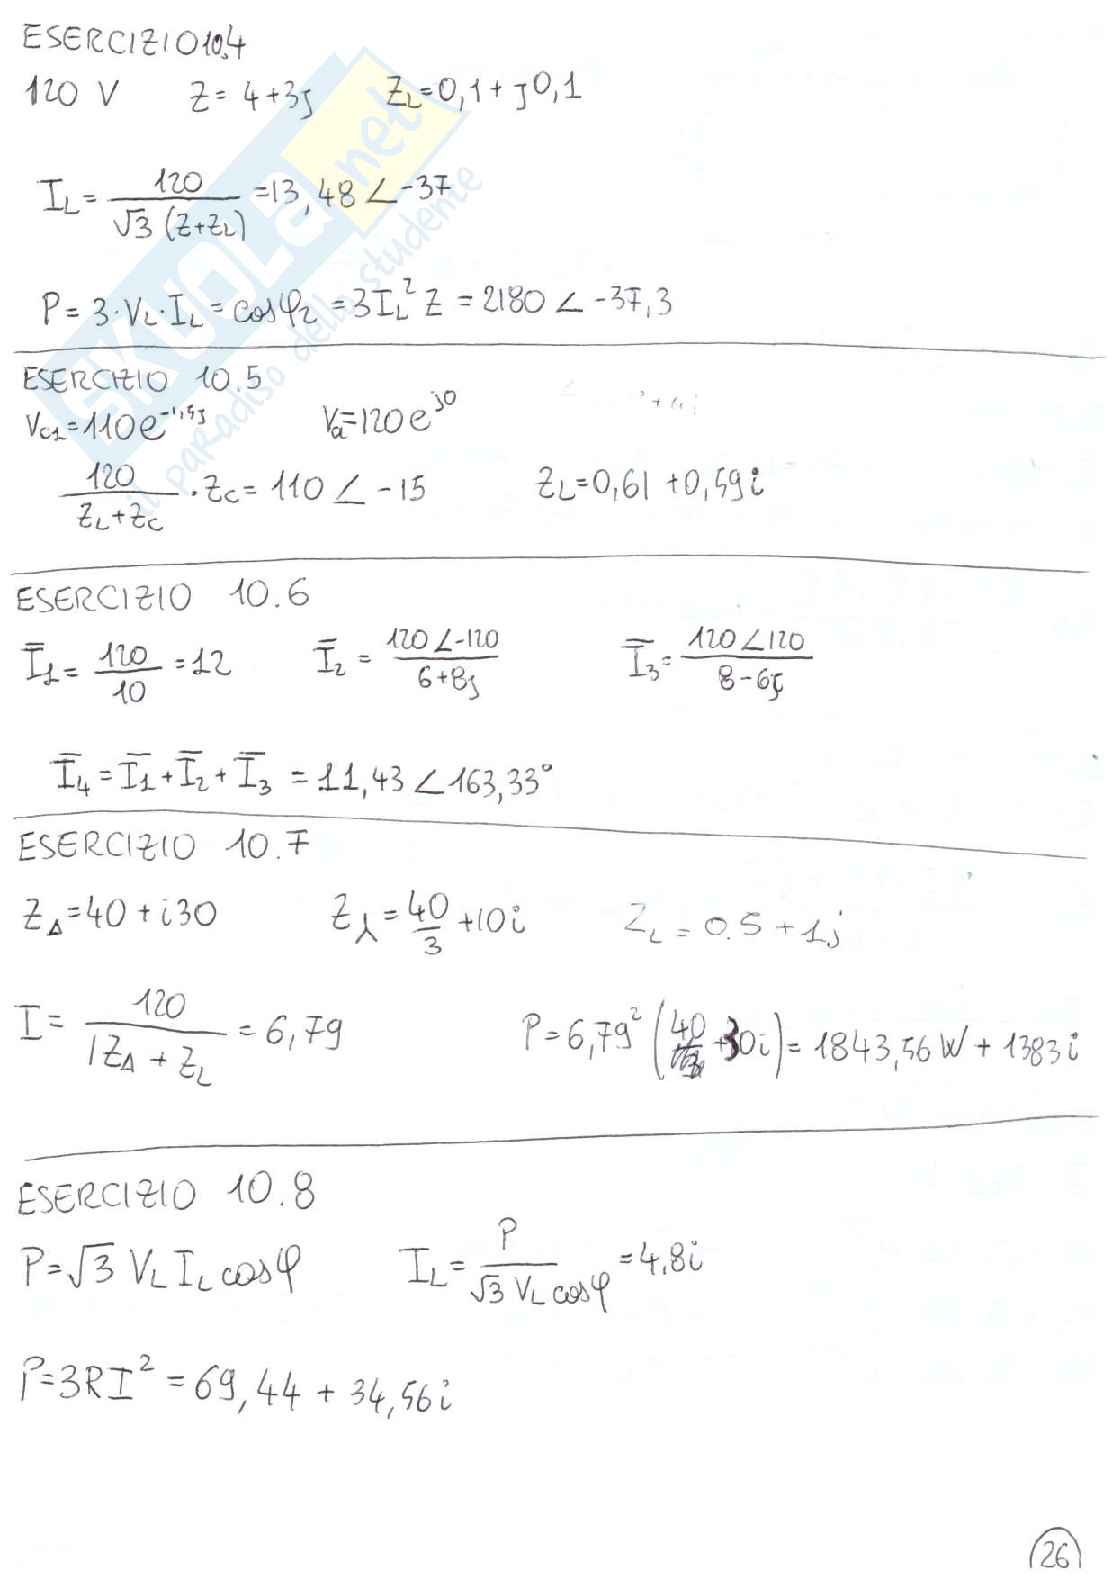 ESERCIZIO 10.4
120 V Z = 4+3j Z_L=0,1+j0,1
I_L = 120 / √3 (Z+Z_L) = 13,48 ∠ -37
P = 3·V_L·I_L = cosφ_2 = 3I_L² Z = 2180 ∠ -37,3
ESERCIZIO 10.5
V_a=120e^j0
120 / Z_L+Z_C · Z_C = 110 ∠ -15 Z_L=0,61 +0,59i
ESERCIZIO 10.6
Ī_1 = 120 / 10 = 12 Ī_2 = 120∠-120 / 6+8j Ī_3 = 120∠120 / 8-6j
Ī_4 = Ī_1 + Ī_2 + Ī_3 = 11,43 ∠163,33°
ESERCIZIO 10.7
Z_Δ=40+i30 Z_⅄ = 40/3 +10i Z_L = 0.5 + 1j
I = 120 / |Z_Δ + Z_L = 6,79 P=6,79² (40 +30i) = 1843,56W + 1383i
ESERCIZIO 10.8
P=√3 V_L I_L cosφ I_L = P / √3 V_L cosφ = 4.8i
P=3RI² = 69,44 + 34,56i
26
SKUOLA.net
il paradiso dello studente